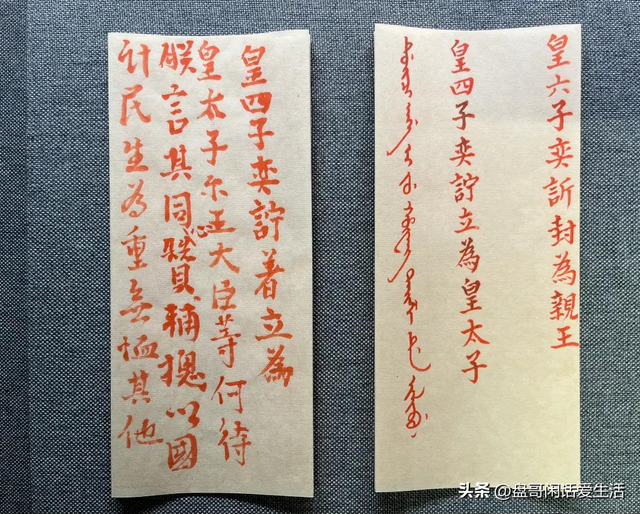 皇六子奕訢封為親王
皇四子奕詝立為皇太子
皇四子奕詝著立為
皇太子尔王大臣等何待
朕言其同心贊輔總以國
計民生為重無恤其他
头条 @盘哥闲话爱生活